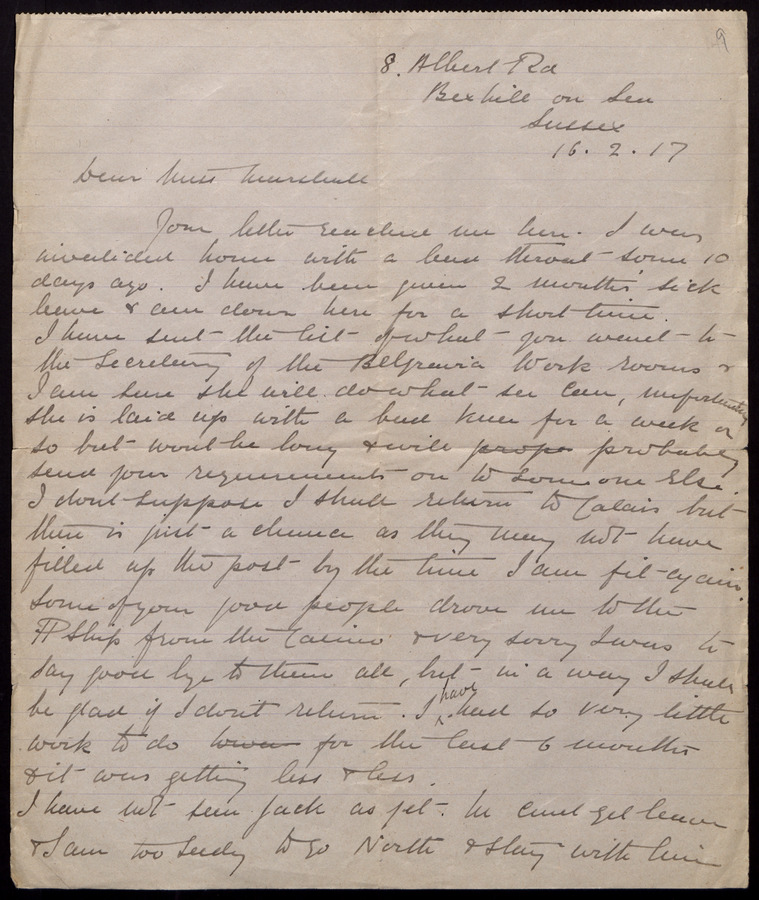 9
8. Albert Rd
Bexhill on Sea
Sussex
16. 2. 17
Dear Miss Marshall
Your letter reached me here. I was
invalided home with a bad throat some 10
days ago. I have been given 2 months' sick
leave & am down here for a short time.
I have sent the list of what you want to
the Secretary of the Belgravia Work rooms &
I am sure she will do what she can, unfortunately
she is laid up with a bad knee for a week or
so but wont be long & will probably
send your requirements on to someone Else.
I dont suppose I shall return to Calais but
there is just a chance as they may not have
filled up the post by the time I am fit again.
Some of your good people drove me to the
ship from the Casino & very sorry I was to
say good bye to them all, but in a way I shall
be glad if I dont return. I have had so very little
work to do for the last 6 months
& it was getting less & less.
I have not seen Jack as yet. He cant get leave
& I am too seedy to go North & stay with him